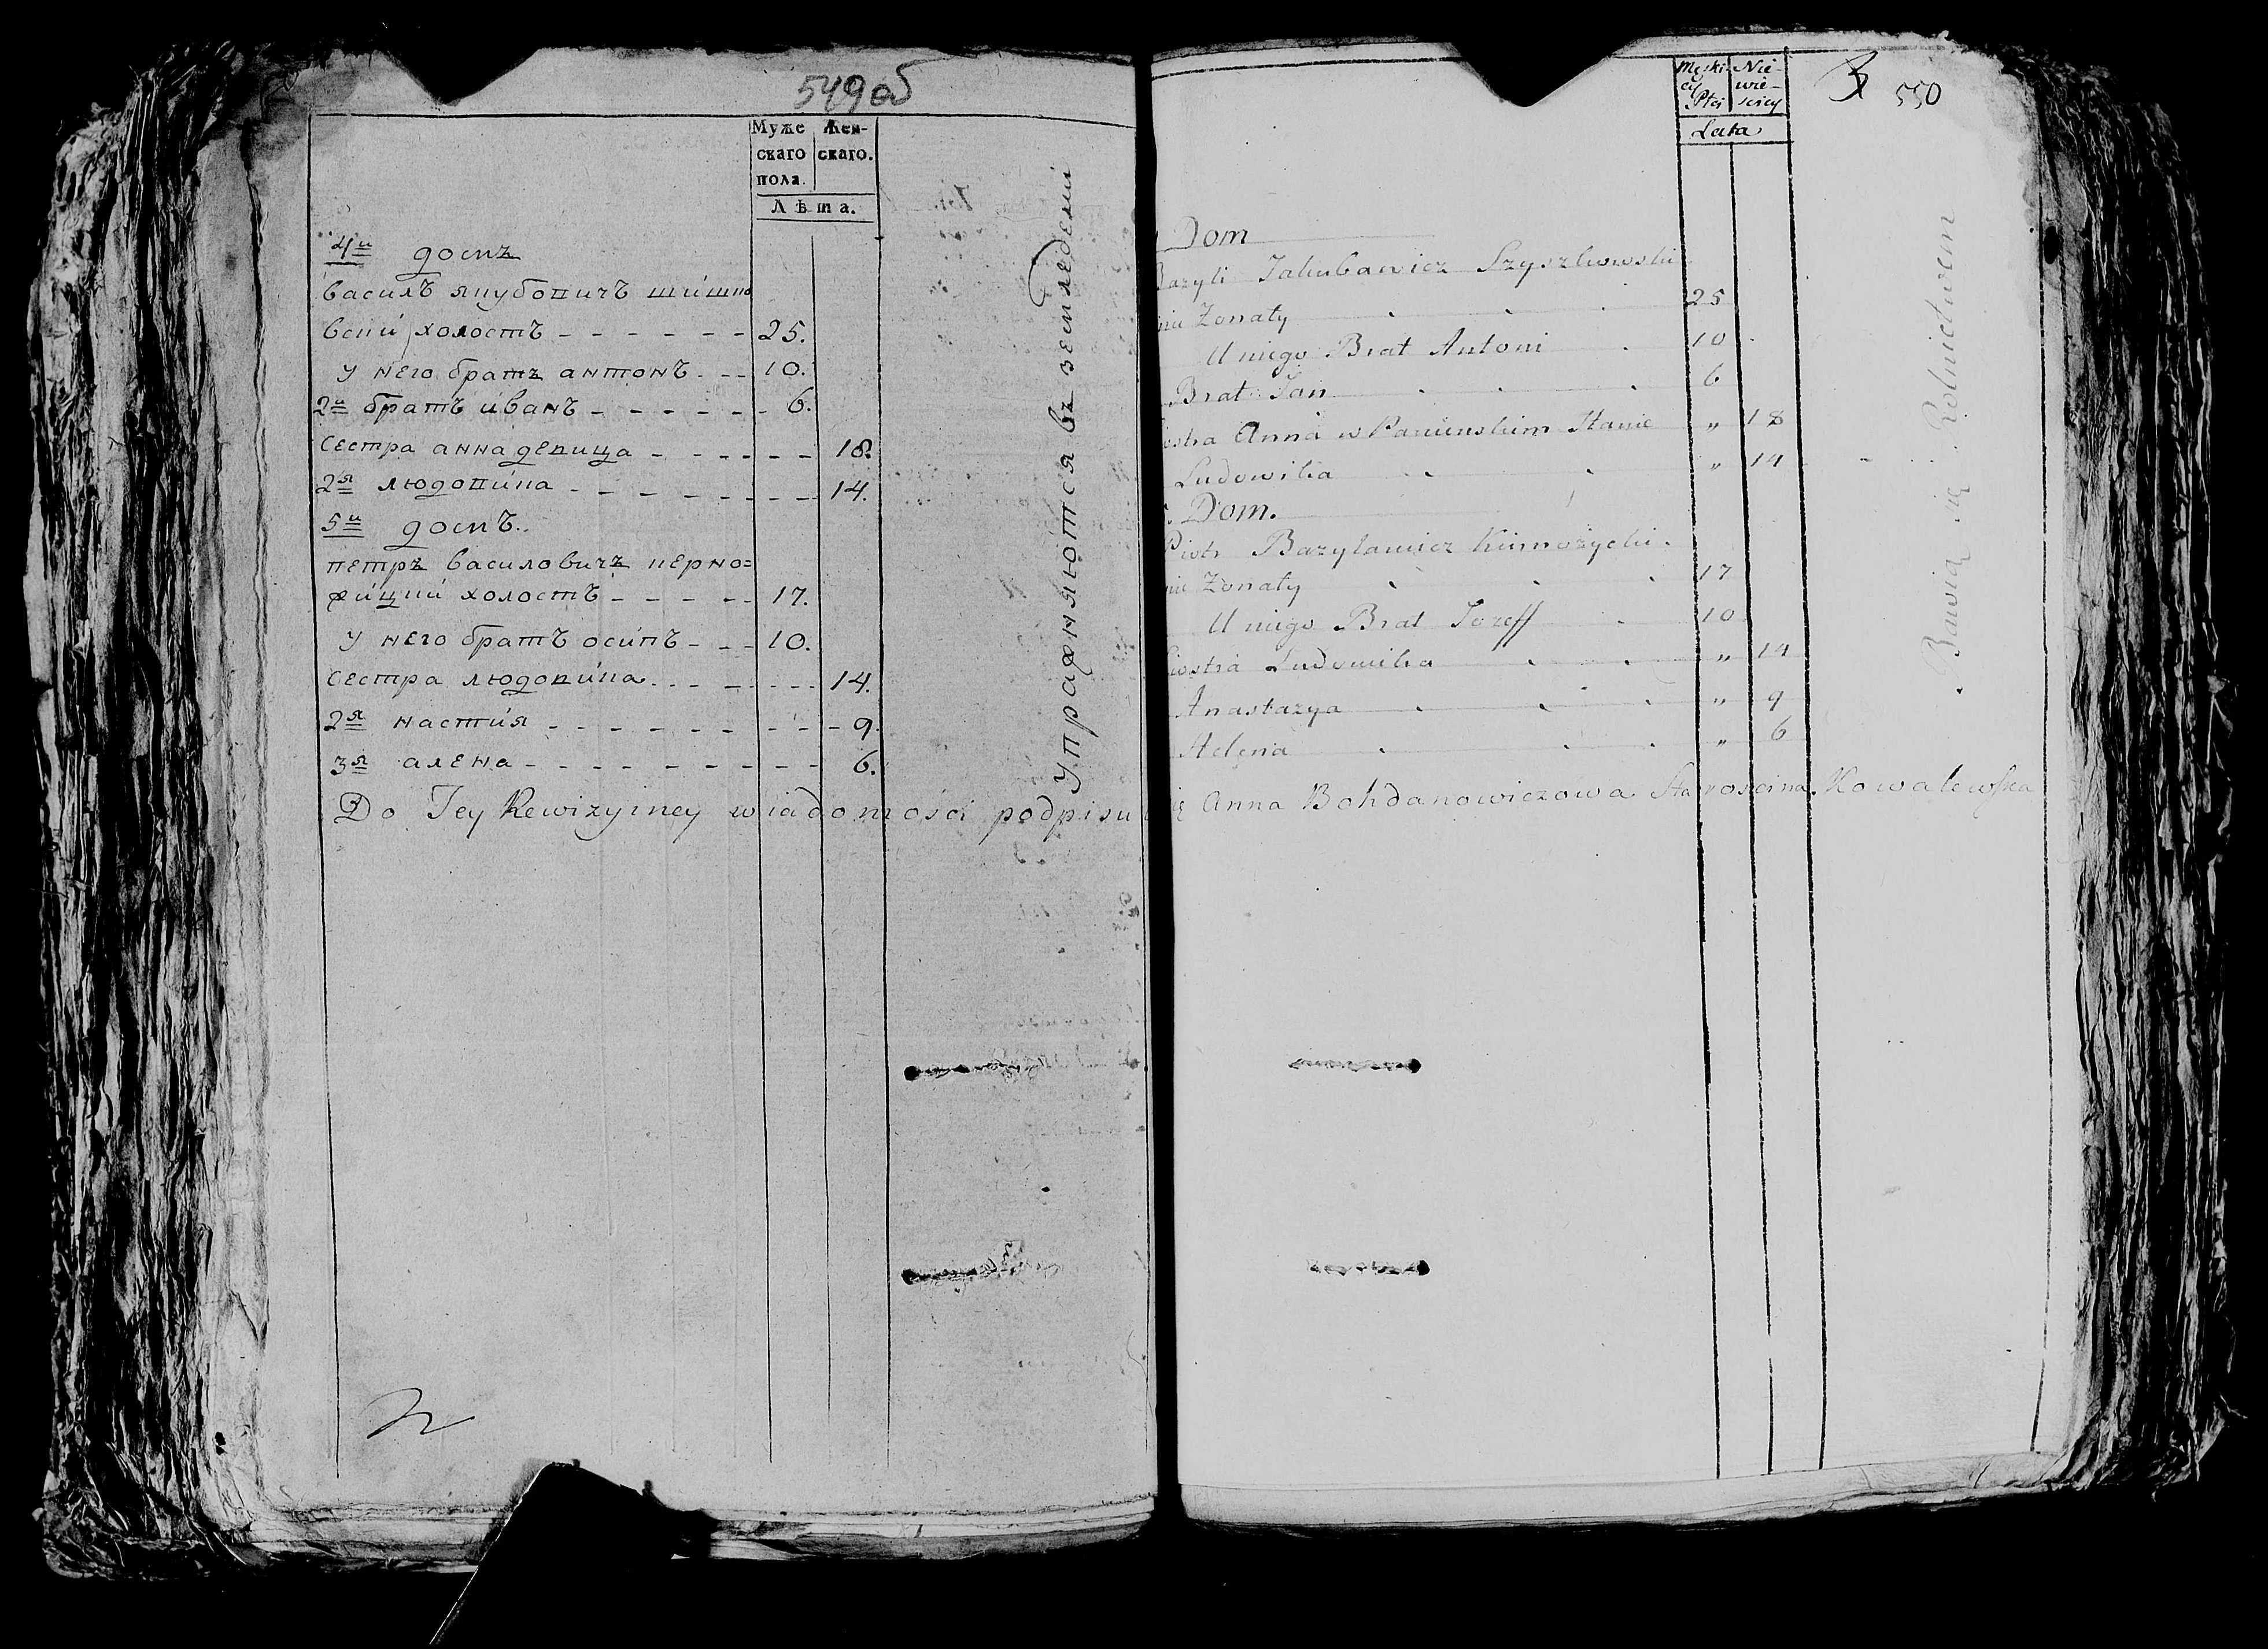 549 об
Муже
скаго
пола.
Жен-
скаго.
Лѣта.
4й домъ
василъ якубовичъ шишко
вскій холостъ 25.
у него братъ антонъ 10.
2й братъ иванъ 6.
сестра анна девица 18.
2я людовика 14.
5й домъ.
петръ василовичъ керно=
жицкій холостъ 17.
у него братъ осипъ 10.
сестра людовика 14.
2я настия 9.
3я алена 6.
упражняются въ земледелии
Do Jey Rewizyiney wiadomości podpisu
ię Anna Bohdanowiczowa Starościna Kowalewska
Męski
ey
Płci
Nie-
wie-
sciey
Lata
3 550
Dom
Bazyli Jakubawicz Szyszkowski
nie Zonaty 25
U niego Brat Antoni 10
Brat Jan 6
iostra Anna w Panienskim Stanie " 18
Ludowika " 14
Dom.
Piotr Bazylawicz Kiernożycki.
nie Zonaty 17
U niego Brat Jozeff 10
Siostra Ludowika " 14
Anastazya " 9
Helena " 6
Bawią się Rolnictwem